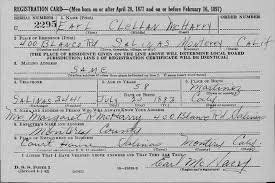 REGISTRATION CARD—(Men born on or after April 28, 1877 and on or before February 16, 1897)
SERIAL NUMBER 1. NAME (Print)
2293 Earl Clellan McHarry
2. PLACE OF RESIDENCE (Print)
400 Blanco Rd Salinas Monterey Calif
[THE PLACE OF RESIDENCE GIVEN ON THE LINE ABOVE WILL DETERMINE LOCAL BOARD
JURISDICTION; LINE 2 OF REGISTRATION CERTIFICATE WILL BE IDENTICAL]
3. MAILING ADDRESS
SAME
4. TELEPHONE
58
Martinez
Salinas July 1883 Calif
7. NAME AND ADDRESS OF PERSON WHO WILL ALWAYS KNOW YOUR ADDRESS
Mrs Margaret R McHarry 400 Blanco Rd Salinas
8. EMPLOYER'S NAME AND ADDRESS
Monterey County
9. PLACE OF EMPLOYMENT OR BUSINESS
Court House Salinas Monterey Calif
I AFFIRM THAT I HAVE VERIFIED ABOVE ANSWERS AND THAT THEY ARE TRUE.
Earl McHarry